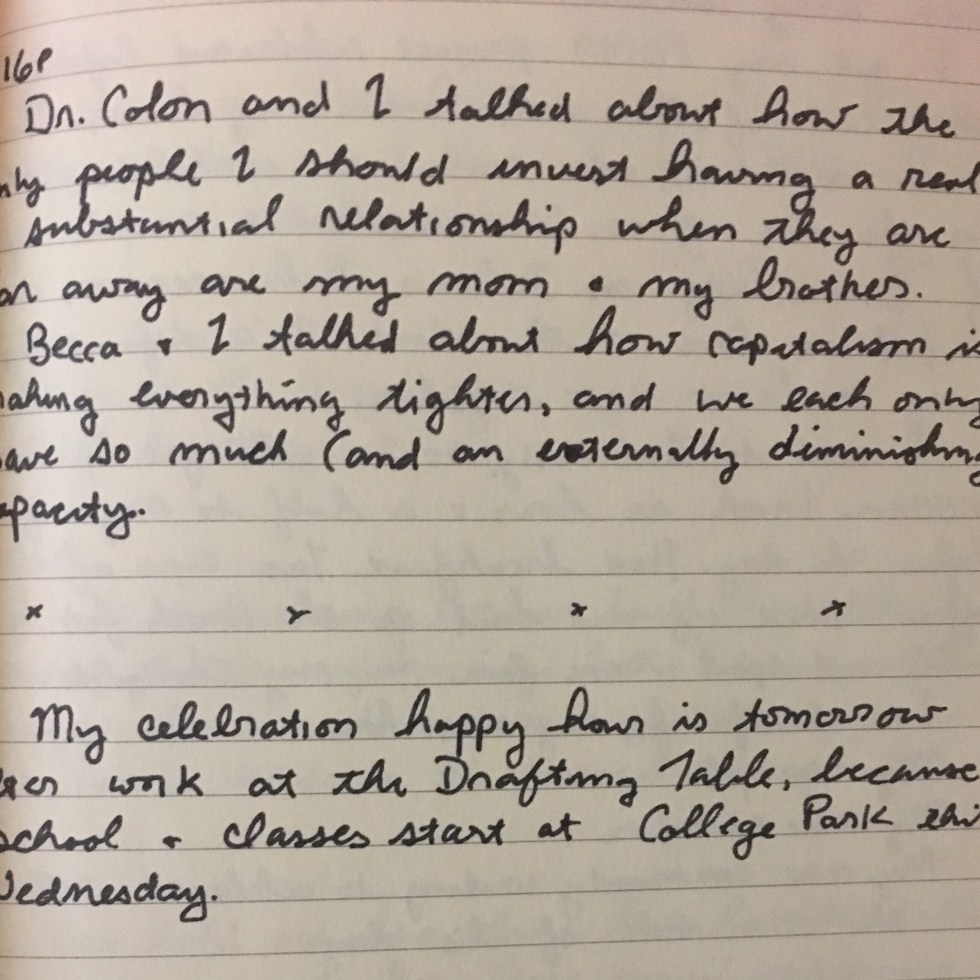 16P
Dr. Colon and I talked about how the
nly people I should invest having a real
substantial relationship when they are
ar away are my mom + my brother.
Becca + I talked about how capitalism is
aking everything tighter, and we each only
ave so much (and an externally diminishing
apacity..
x x x x
My celebration happy hour is tomorrow
ter work at the Drafting Table, because
school + classes start at College Park thi
Wednesday.